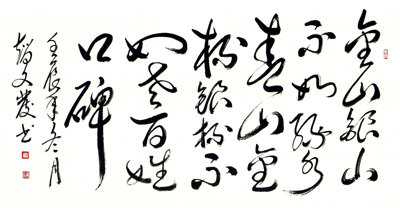 金山银山
不如绿水
青山金
杯银杯不
如老百姓
口碑
壬辰年冬月
赵文发书